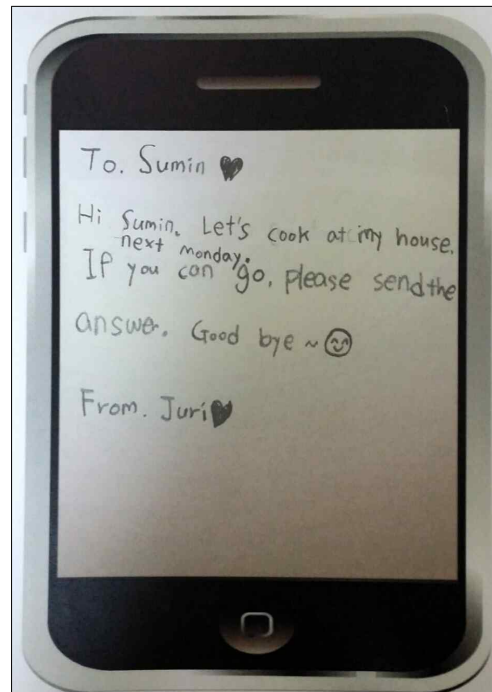 To. Sumin ♥
Hi Sumin. Let's cook at my house.
next monday.
If you can go, please send the
answer. Good bye ~ ☺
From. Juri♥